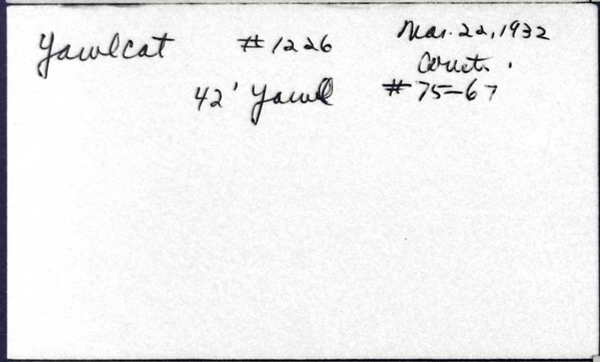 Yawlcat #1226 Mar. 22, 1932
Contr.
42' Yawl #75-67